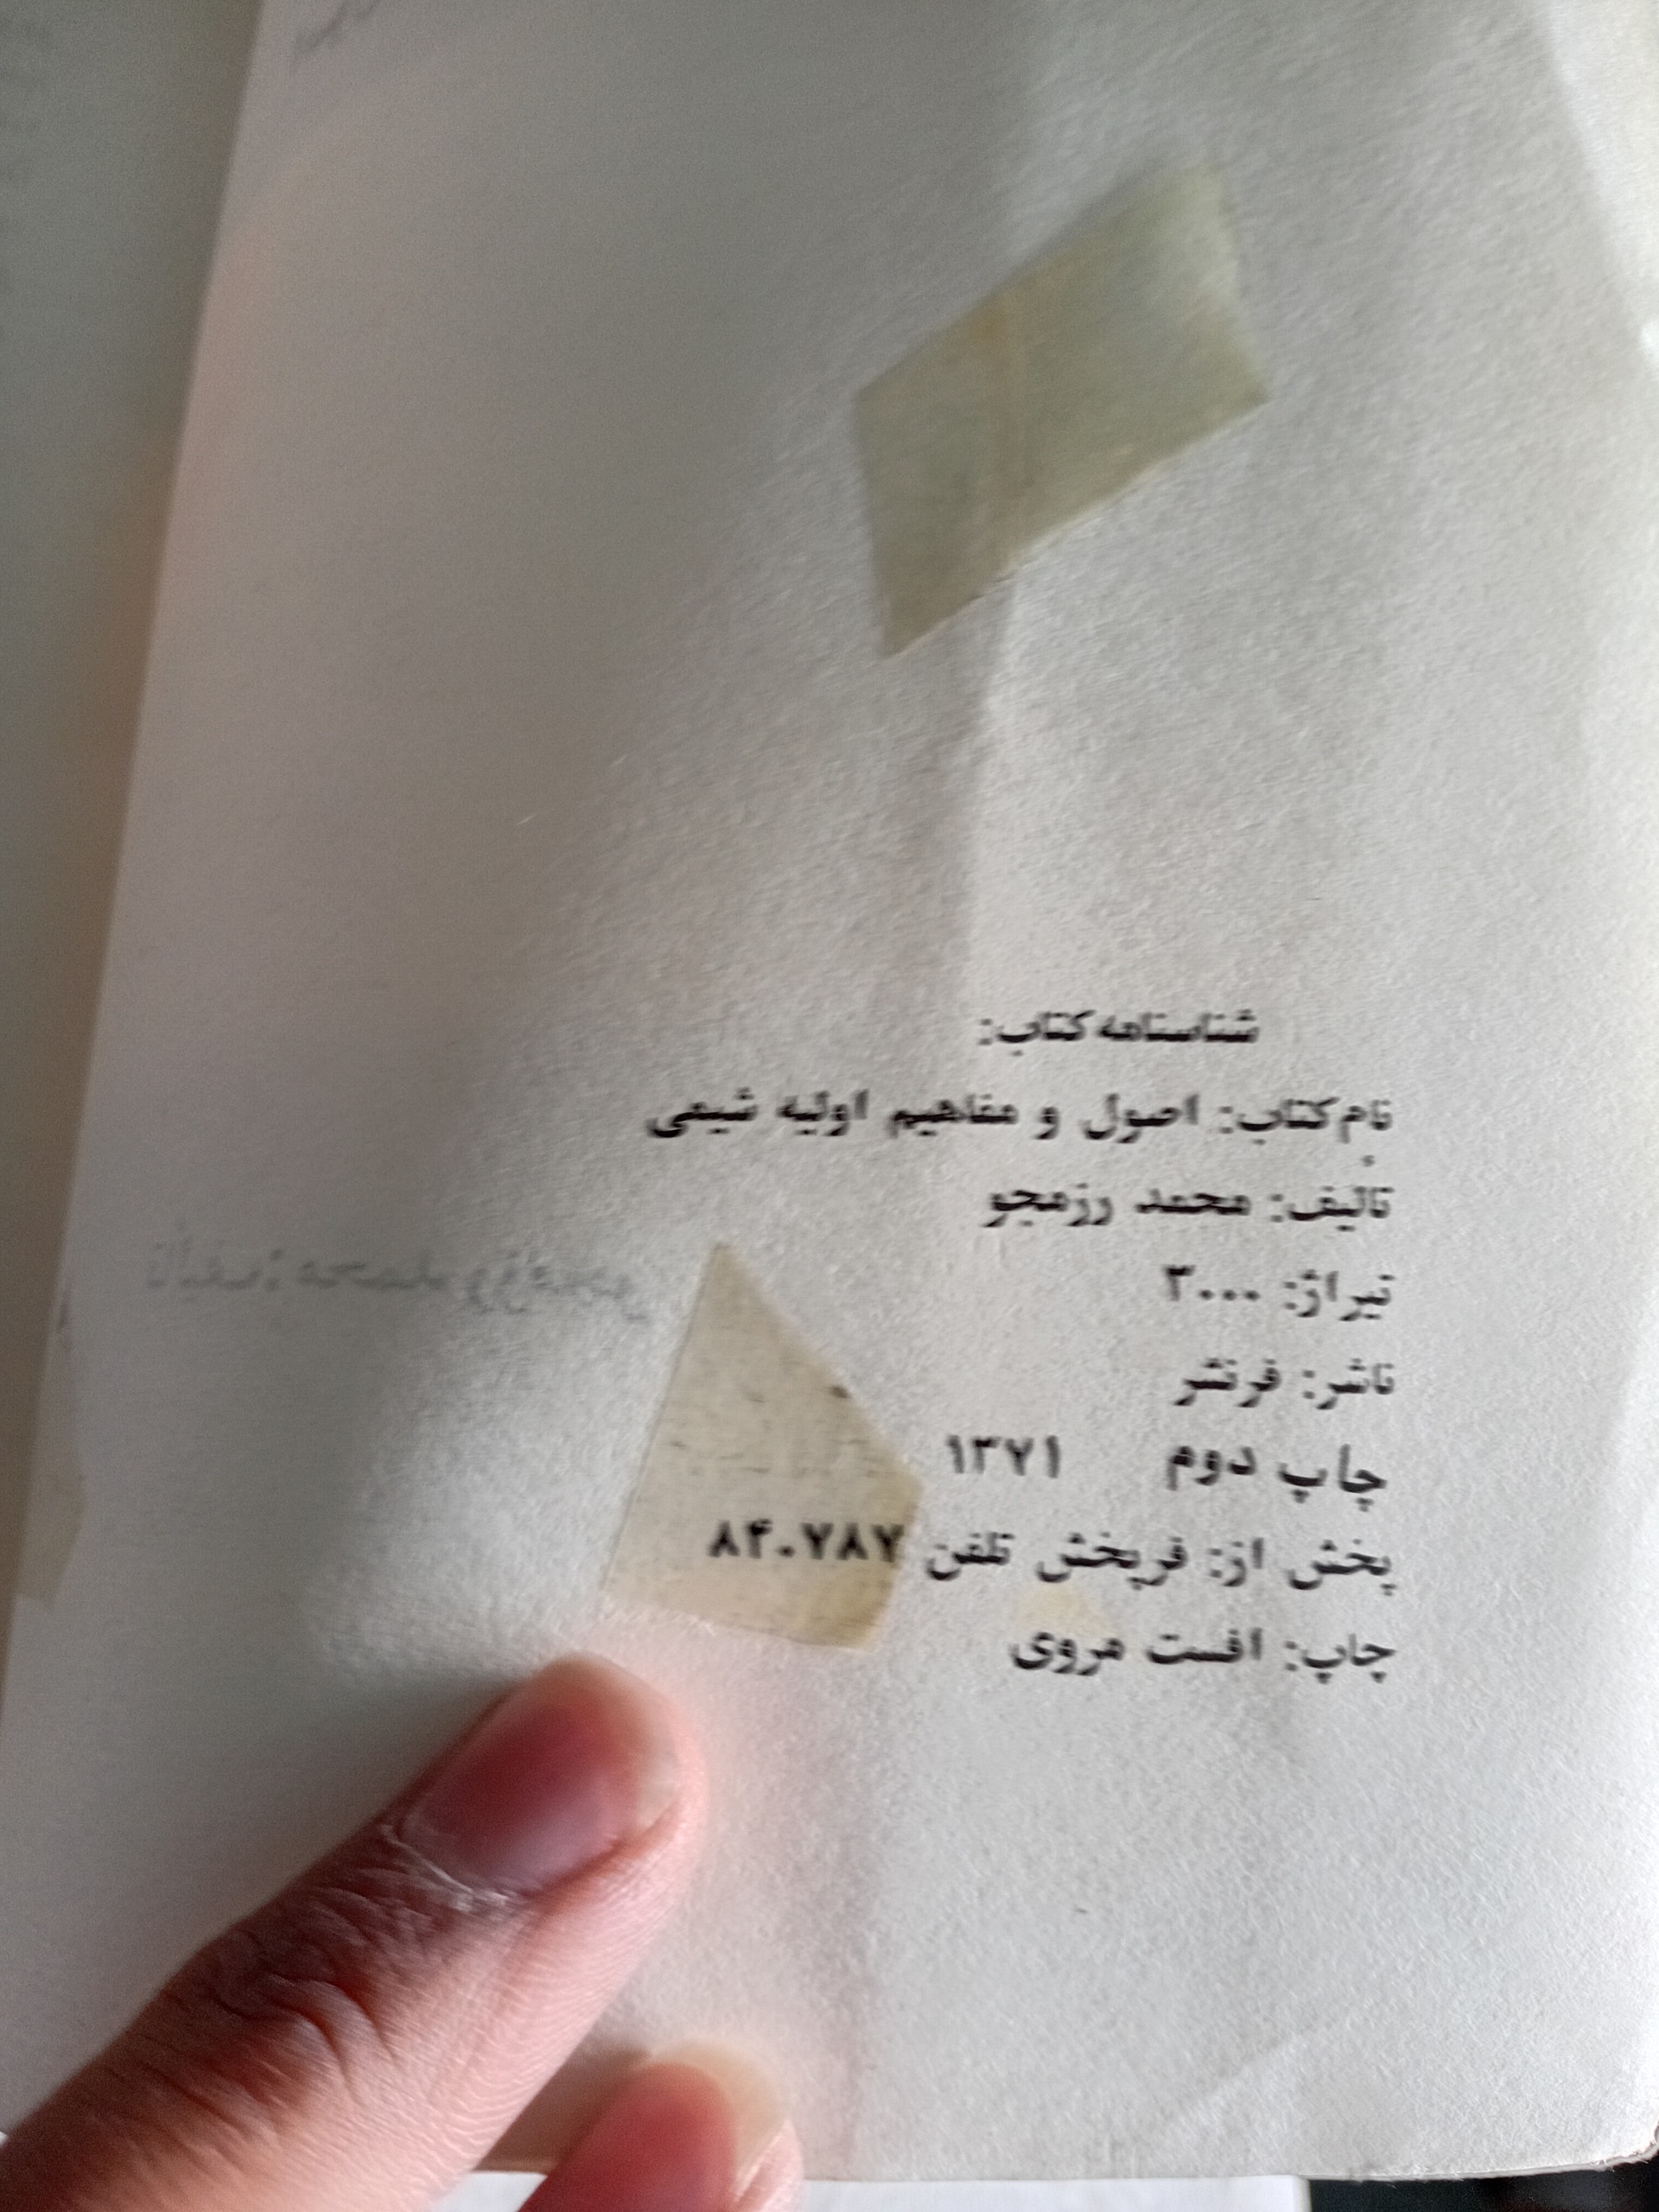 شناسنامه کتاب:
نام کتاب: اصول و مفاهیم اولیه شیمی
تالیف: محمد رزمجو
تیراژ: ۳۰۰۰
ناشر: فرنشر
چاپ دوم ۱۳۷۱
پخش از: فرپخش تلفن ۸۴۰۷۸۷
چاپ: افست مروی